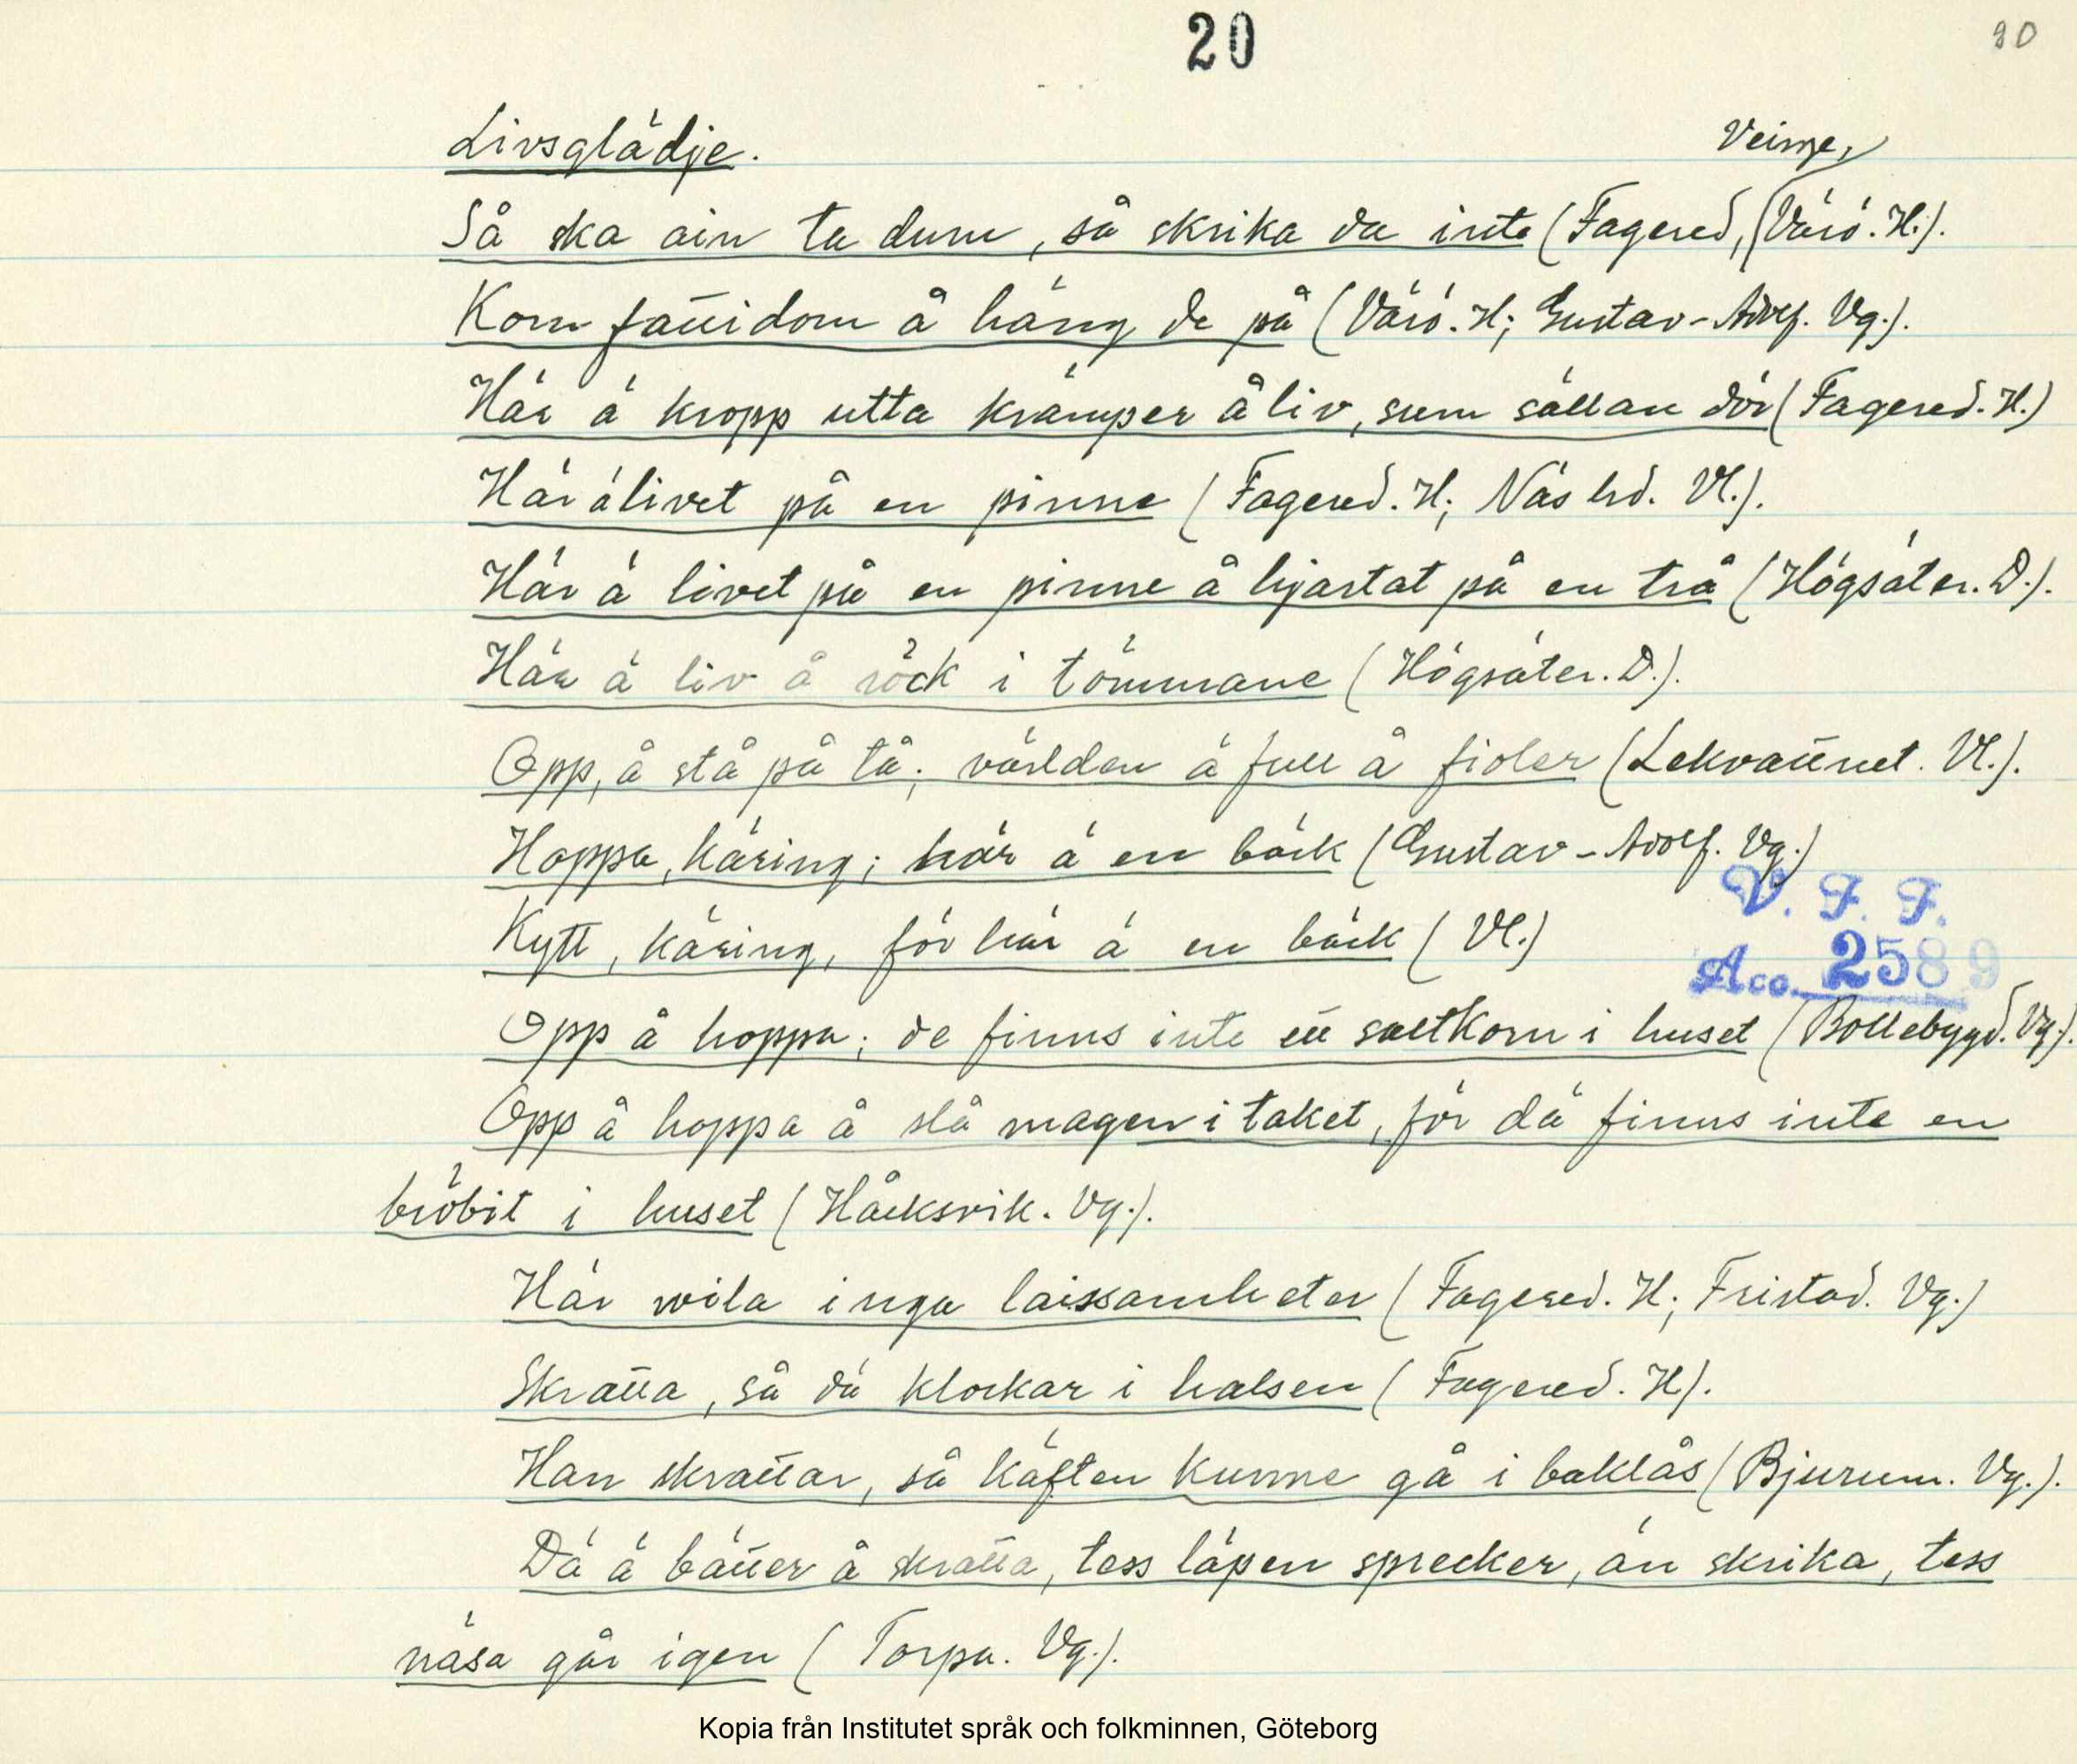 20
20
Livsglädje.
Veinge,
Så ska ain ta dum, så skrika da inte (Fagered, Värö. H.).
Kom fattidom å häng de på (Värö. H; Gustav-Adolf. Vg.).
Här ä kropp utta krämper å liv, sum sällan dör (Fagered. H.)
Här ä livet på en pinne (Fagered. H; Näs hd. Vl.).
Här ä livet på en pinne å hjartat på en trå (Högsäter. D.).
Här ä liv å röck i tömmane (Högsäter. D.).
Opp, å stå på tå; världen ä full å fioler (Lekvattnet. Vl.).
Hoppa, käring; här ä en bäck (Gustav-Adolf. Vg.)
V. F. F.
Kytt, käring, för här ä en bäck (Vl.)
Acc. 2589
Opp å hoppa; de finns inte ett saltkorn i huset (Bollebygd. Vg.).
Opp å hoppa å slå magen i taket, för dä finns inte en
bröbit i huset (Håcksvik. Vg.).
Här vila inga laissamheter (Fagered. H; Fristad. Vg.)
Skratta, så dä klockar i halsen (Fagered. H).
Han skrattar, så käften kunne gå i baklås (Bjurum. Vg.).
Dä ä bätter å skratta, tess läpen sprecker, än skrika, tess
näsa går igen (Torpa. Vg.).
Kopia från Institutet språk och folkminnen, Göteborg